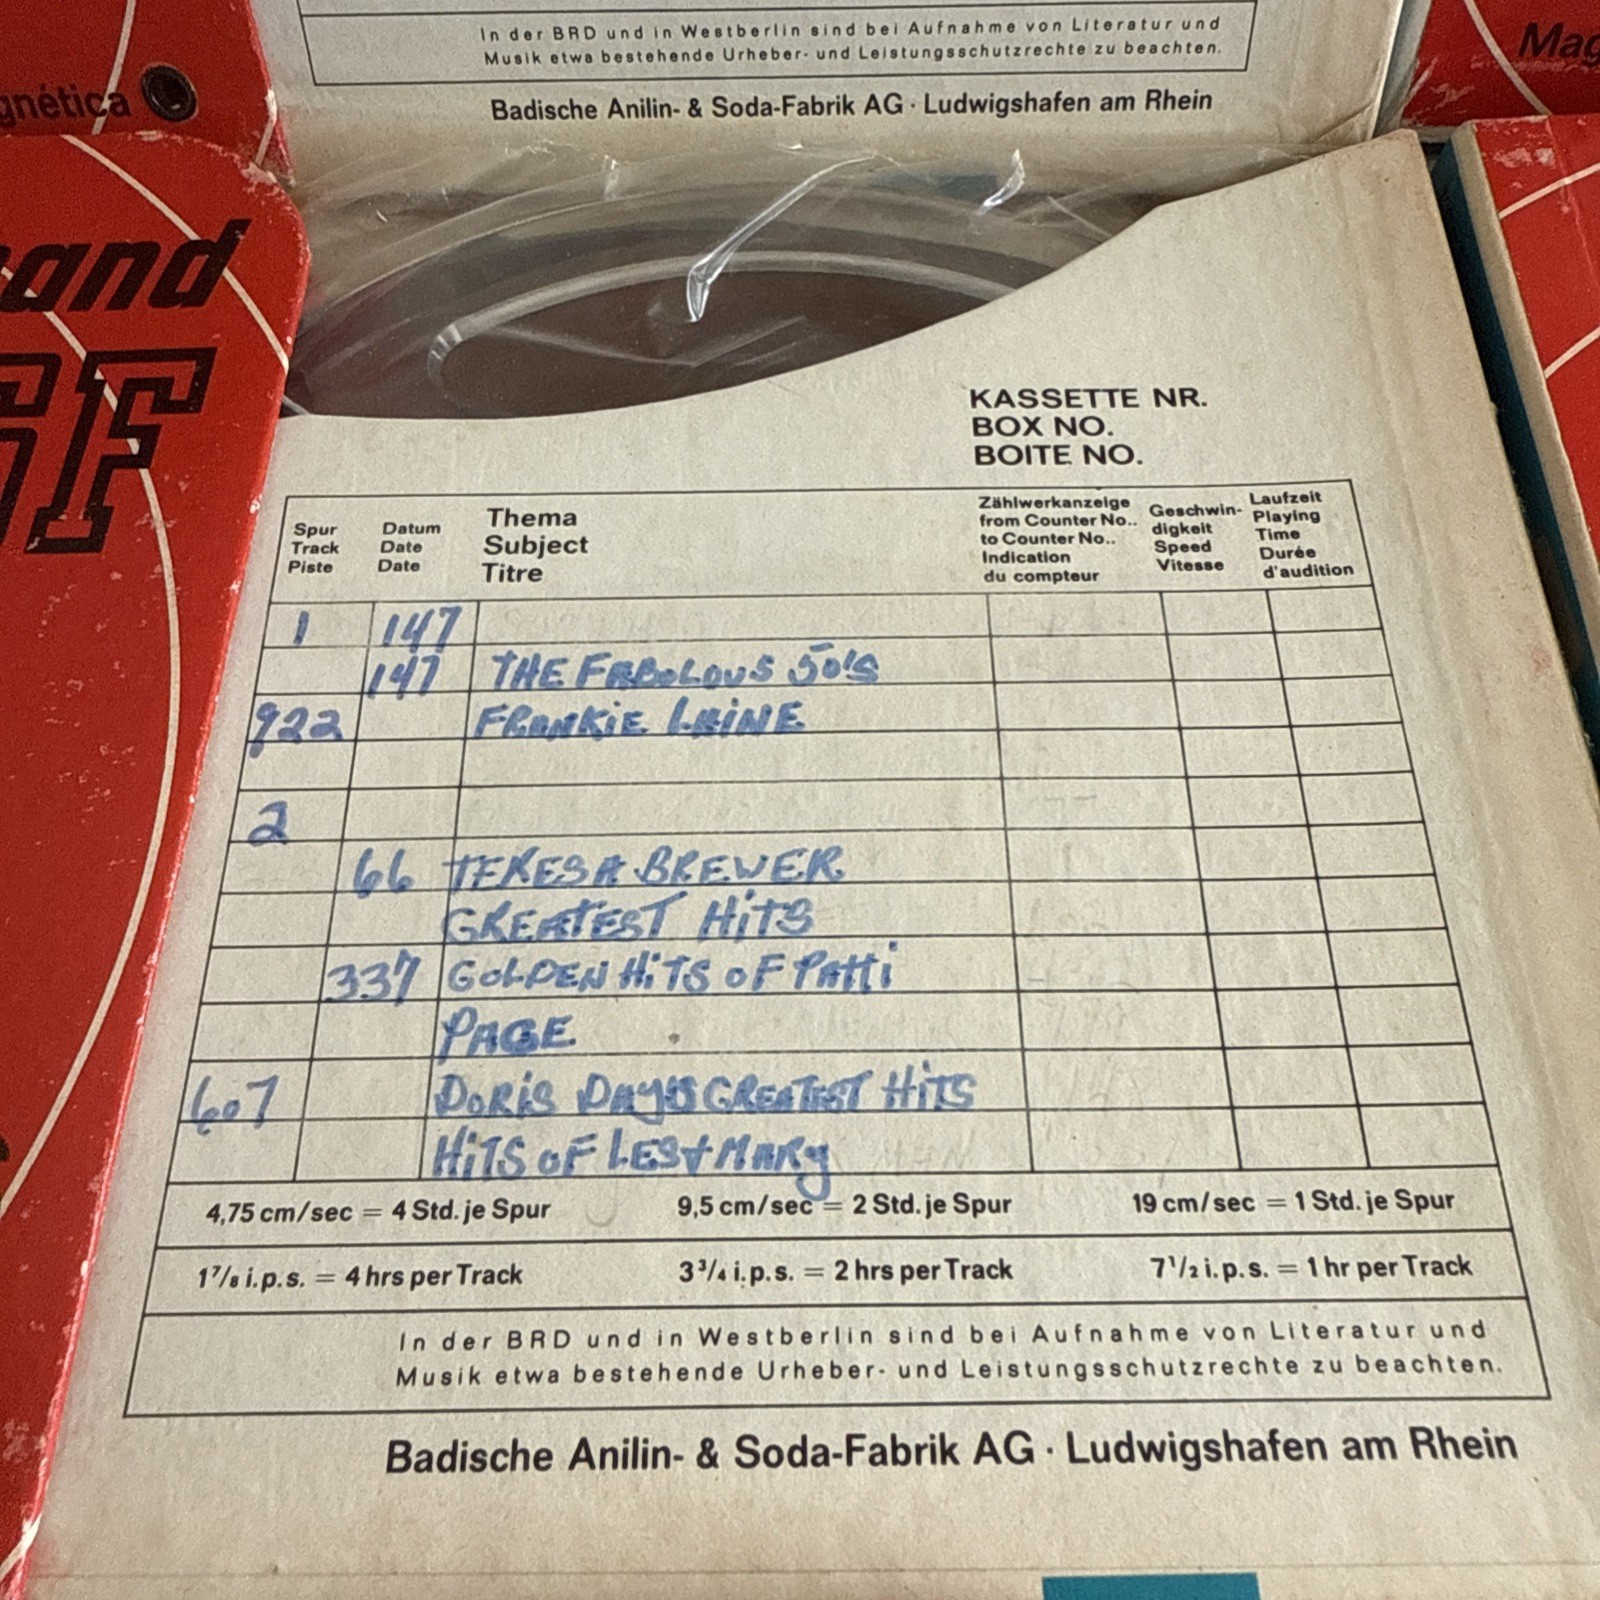 In der BRD und in Westberlin sind bei Aufnahme von Literatur und
Musik etwa bestehende Urheber- und Leistungsschutzrechte zu beachten.
Badische Anilin- & Soda-Fabrik AG · Ludwigshafen am Rhein
gnética
Mag
and
SF
KASSETTE NR.
BOX NO.
BOITE NO.
Spur
Track
Piste
Datum
Date
Date
Thema
Subject
Titre
Zählwerkanzeige
from Counter No..
to Counter No..
Indication
du compteur
Geschwin-
digkeit
Speed
Vitesse
Laufzeit
Playing
Time
Durée
d'audition
1 147
147 THE FABOLOUS 50'S
922 FRANKIE LAINE
2
66 TERESA BREWER
GREATEST HiTS
337 GOLDEN HiTS OF PAtti
PAGE
607 DORiS DAY'S GREATEST HiTS
HiTS OF LES + MARy
4,75 cm/sec = 4 Std. je Spur 9,5 cm/sec = 2 Std. je Spur 19 cm/sec = 1 Std. je Spur
1⅞ i.p.s. = 4 hrs per Track 3¾ i.p.s. = 2 hrs per Track 7½ i.p.s. = 1 hr per Track
In der BRD und in Westberlin sind bei Aufnahme von Literatur und
Musik etwa bestehende Urheber- und Leistungsschutzrechte zu beachten.
Badische Anilin- & Soda-Fabrik AG · Ludwigshafen am Rhein